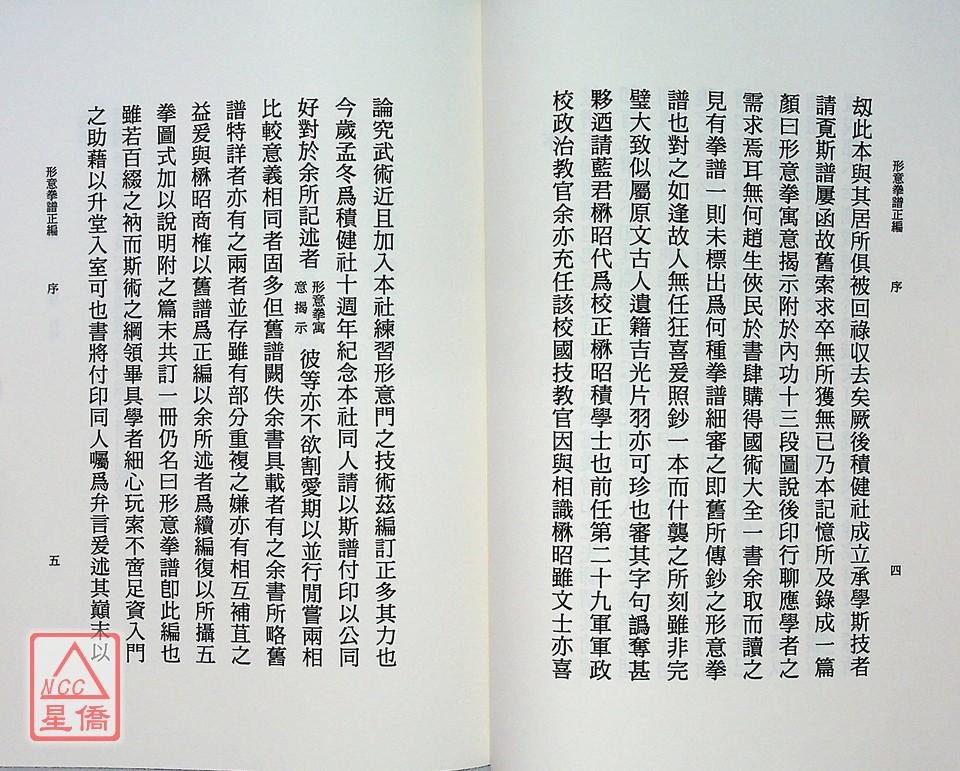 形意拳譜正編
序
四
刼此本與其居所俱被回祿収去矣厥後積健社成立承學斯技者
請覔斯譜屢函故舊索求卒無所獲無已乃本記憶所及錄成一篇
顏曰形意拳寓意揭示附於內功十三段圖說後印行聊應學者之
需求焉耳無何趙生俠民於書肆購得國術大全一書余取而讀之
見有拳譜一則未標出爲何種拳譜細審之即舊所傳鈔之形意拳
譜也對之如逢故人無任狂喜爰照鈔一本而什襲之所刻雖非完
璧大致似屬原文古人遺籍吉光片羽亦可珍也審其字句譌奪甚
夥迺請藍君楙昭代爲校正楙昭積學士也前任第二十九軍軍政
校政治教官余亦充任該校國技教官因與相識楙昭雖文士亦喜
論究武術近且加入本社練習形意門之技術茲編訂正多其力也
今歲孟冬爲積健社十週年紀念本社同人請以斯譜付印以公同
好對於余所記述者形意拳寓意揭示彼等亦不欲割愛期以並行閒嘗兩相
比較意義相同者固多但舊譜闕佚余書具載者有之余書所略舊
譜特詳者亦有之兩者並存雖有部分重複之嫌亦有相互補苴之
益爰與楙昭商榷以舊譜爲正編以余所述者爲續編復以所攝五
拳圖式加以說明附之篇末共訂一冊仍名曰形意拳譜卽此編也
雖若百綴之衲而斯術之綱領畢具學者細心玩索不啻足資入門
之助藉以升堂入室可也書將付印同人囑爲弁言爰述其巔末以
形意拳譜正編
序
五
NCC
星僑